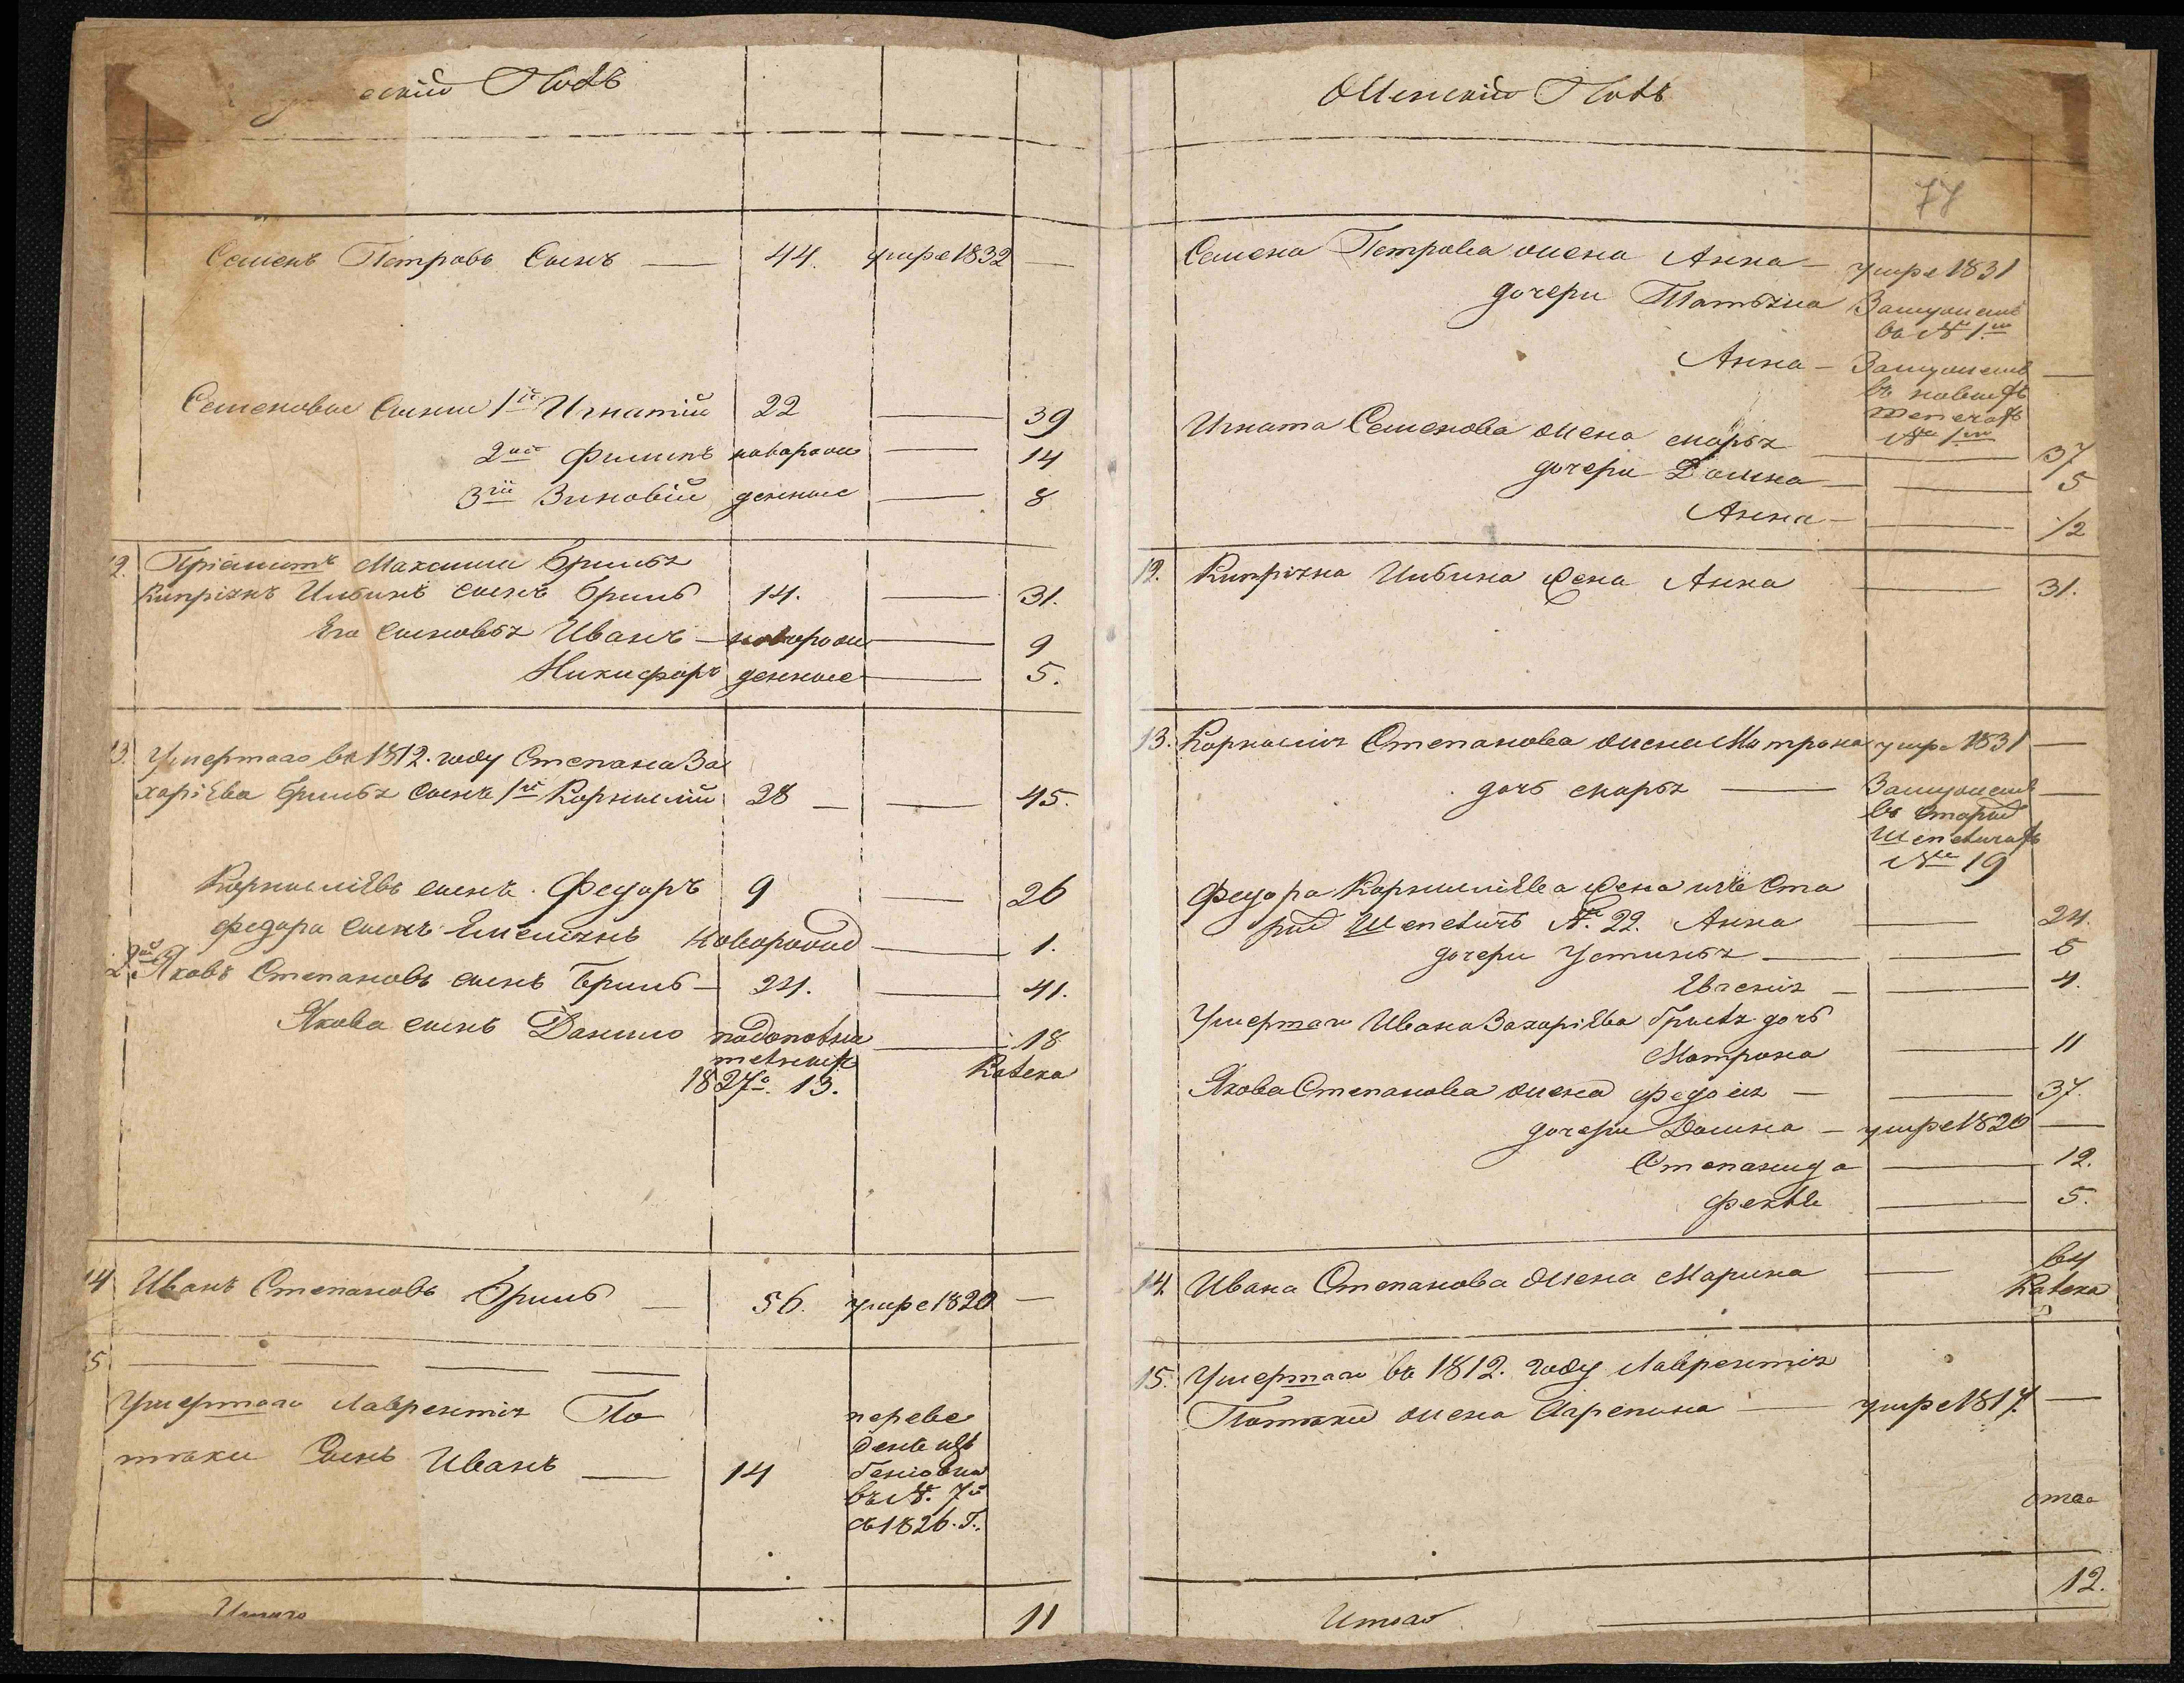 Полъ
Семенъ Петровъ Сынъ — 44. умре 1832 —
Семеновы Сыны 1й Игнатій 22 — 39
2й Филипъ новорож — 14
3ій Зиновій денные — 8
12. Пріемитъ Максима Брылъя
Кипріянъ Ильинъ сынъ Брыль 14. — 31.
Его сыновья Иванъ — новорож — 9
Никифоръ денные — 5.
13. Умершаго въ 1812. году Степана За
харіева Брыля сынъ 1й Корнилій 28 — — 45.
Корниліевъ сынъ. Федоръ 9 — 26
Федора сынъ Емеліянъ новорожд — 1.
2й Яковъ Степановъ сынъ Брыль — 24. — 41.
Якова сынъ Данило — 18
1827го. 13. Калека
14 Иванъ Степановъ Брыль — 56. умре 1820 —
15
Умершаго Лаврентія По
токи Сынъ Иванъ — 14
переве
денъ изъ
въ №. 7й
съ 1826. Г.
Итого 11
Женскій Полъ
77
Семена Петрова жена Анна — умре 1831
дочери Татьяна Замужемъ
въ № 1м
Анна — Замужемъ —
въ новыхъ
№ 1м
Игната Семенова жена Марья — 37
дочери Домна — — 5
Анна — — 1/2
12. Кипріяна Ильина жена Анна — 31.
13. Корнилія Степанова жена Матрона умре 1831 —
дочь Марья — Замужемъ —
въ Старой
Шепеличахъ
№ 19
Федора Корниліева жена изъ Ста
рой Шепеличъ №. 22. Анна — 24.
дочери Устинья — — 5
Евгенія — — 4.
Умершаго Ивана Захаріева Брыля дочь
Матрона — 11
Якова Степанова жена Федося — — 37.
дочери Домна — умре 1820 —
Степанида — 12.
Фекла — 5.
14. Ивана Степанова жена Марина — 64
Калека
15. Умершаго въ 1812. году Лаврентія
Потоки жена Агрепина — умре 1817. —
Итого — 12.